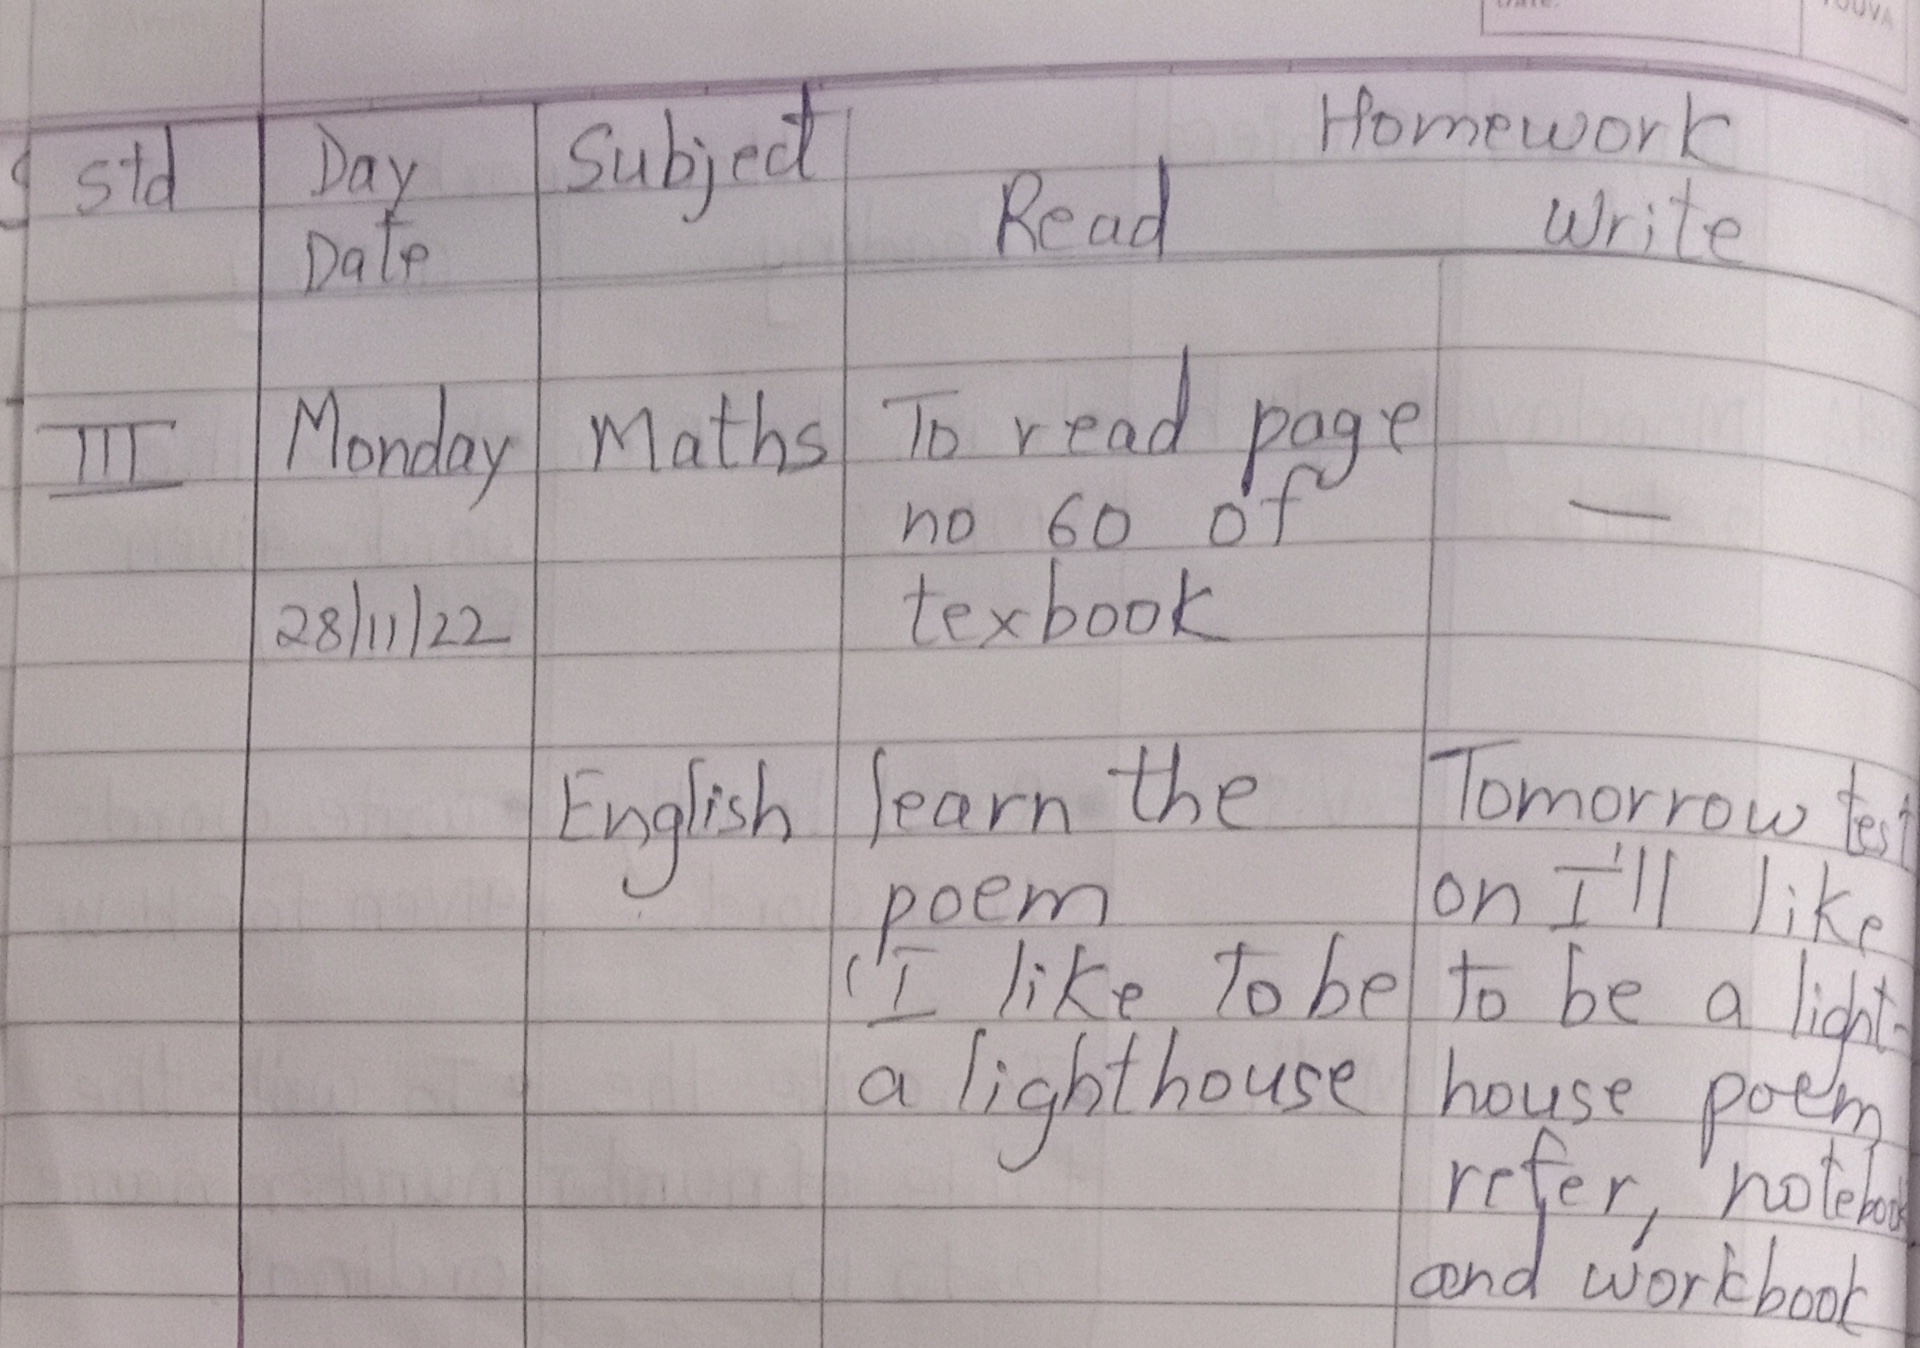 Std Day Subject Homework
Date Read Write
III Monday Maths To read page
no 60 of —
28/11/22 texbook
English learn the Tomorrow test
poem on I'll like
'I like to be to be a light-
a lighthouse house poem
refer, notebook
and workbook